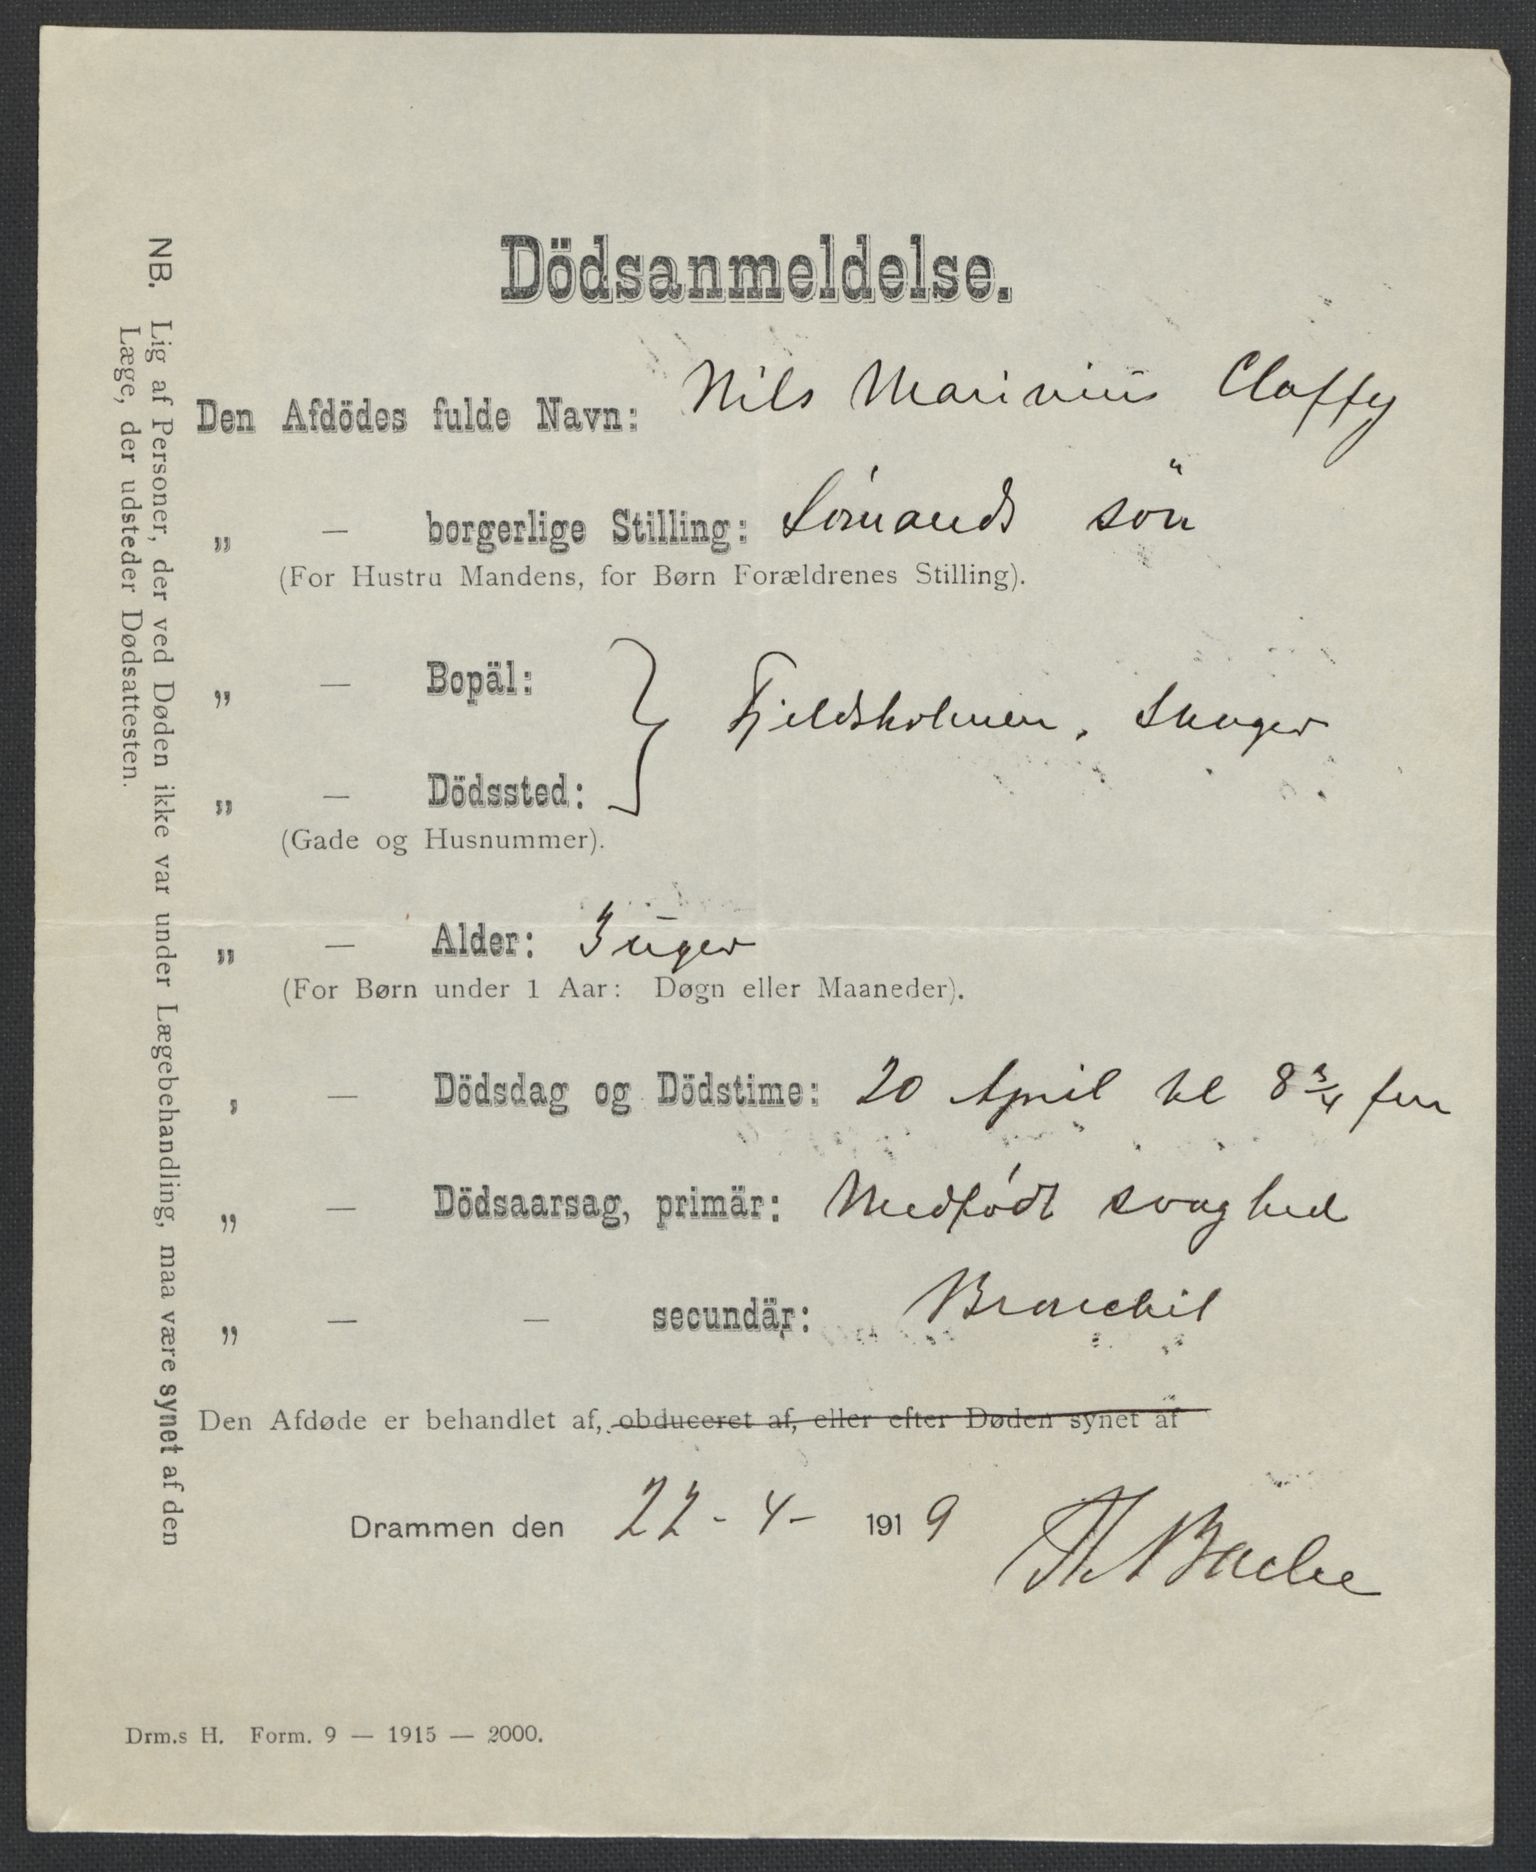 Dödsanmeldelse.
Den Afdödes fulde Navn: Nils Marinius Claffy
„ — borgerlige Stilling: Sømands sön
(For Hustru Mandens, for Børn Forældrenes Stilling).
„ — Bopäl:
} Fjeldsholmen, Skoger
„ — Dödssted:
(Gade og Husnummer).
„ — Alder: 3 uger
(For Børn under 1 Aar: Døgn eller Maaneder).
, — Dödsdag og Dödstime: 20 April kl 8 3/4 fm
„ — Dödsaarsag, primär: Medfødt svaghed
„ — — secundär: Bronchit
Den Afdøde er behandlet af, obduceret af, eller efter Døden synet af
Drammen den 22-4-1919 Bache
Drm.s H. Form. 9 — 1915 — 2000.
NB. Lig af Personer, der ved Døden ikke var under Lægebehandling, maa være synet af den
Læge, der udsteder Dødsattesten.